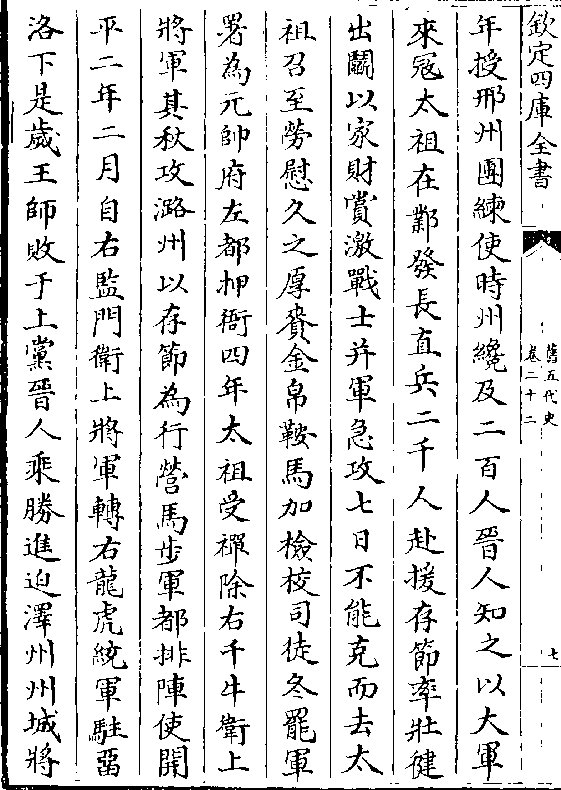 欽定四庫全書
舊五代史
卷二十二
七
年授邢州團練使時州纔及二百人晉人知之以大軍
來冦太祖在鄴發長直兵二千人赴援存節率壯健
出鬬以家財賞激戰士并軍急攻七日不能克而去太
祖召至勞慰久之厚賚金帛鞍馬加檢校司徒冬罷軍
署為元帥府左都押衙四年太祖受禪除右千牛衛上
將軍其秋攻潞州以存節為行營馬步軍都排陣使開
平二年二月自右監門衛上將軍轉右龍虎統軍駐留
洛下是歲王師敗于上黨晉人乘勝進迫澤州州城將